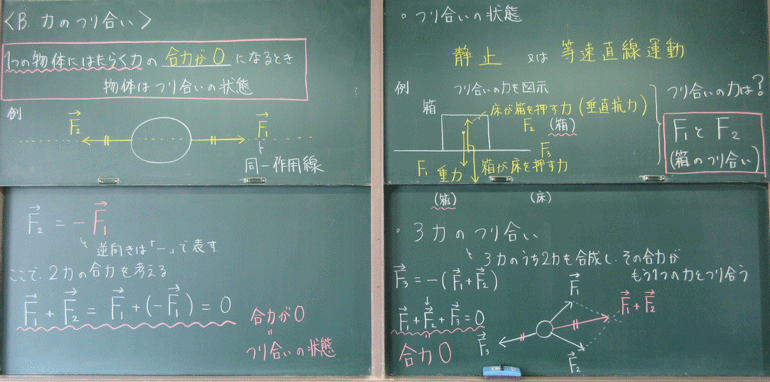 〈B. 力のつり合い〉
1つの物体にはたらく力の 合力が0 になるとき
物体はつり合いの状態
例
F₂→ F₁→
同一作用線
F₂→ = -F₁→
逆向きは「-」で表す
ここで、2力の合力を考える
F₁→ + F₂→ = F₁→ + (-F₁→) = 0
合力が0
〃
つり合いの状態
。つり合いの状態
静止 又は 等速直線運動
例 つり合いの力を図示
箱 床が箱を押す力(垂直抗力)
F₂ (箱)
F₃
F₁ 重力 箱が床を押す力
(箱) (床)
つり合いの力は?
F₁とF₂
(箱のつり合い)
。3力のつり合い
3力のうち2力を合成し、その合力が
もう1つの力とつり合う
F₃→ = -(F₁→ + F₂→)
F₁→ + F₂→ + F₃→ = 0
合力0
F₁→
F₁→ + F₂→
F₃→
F₂→